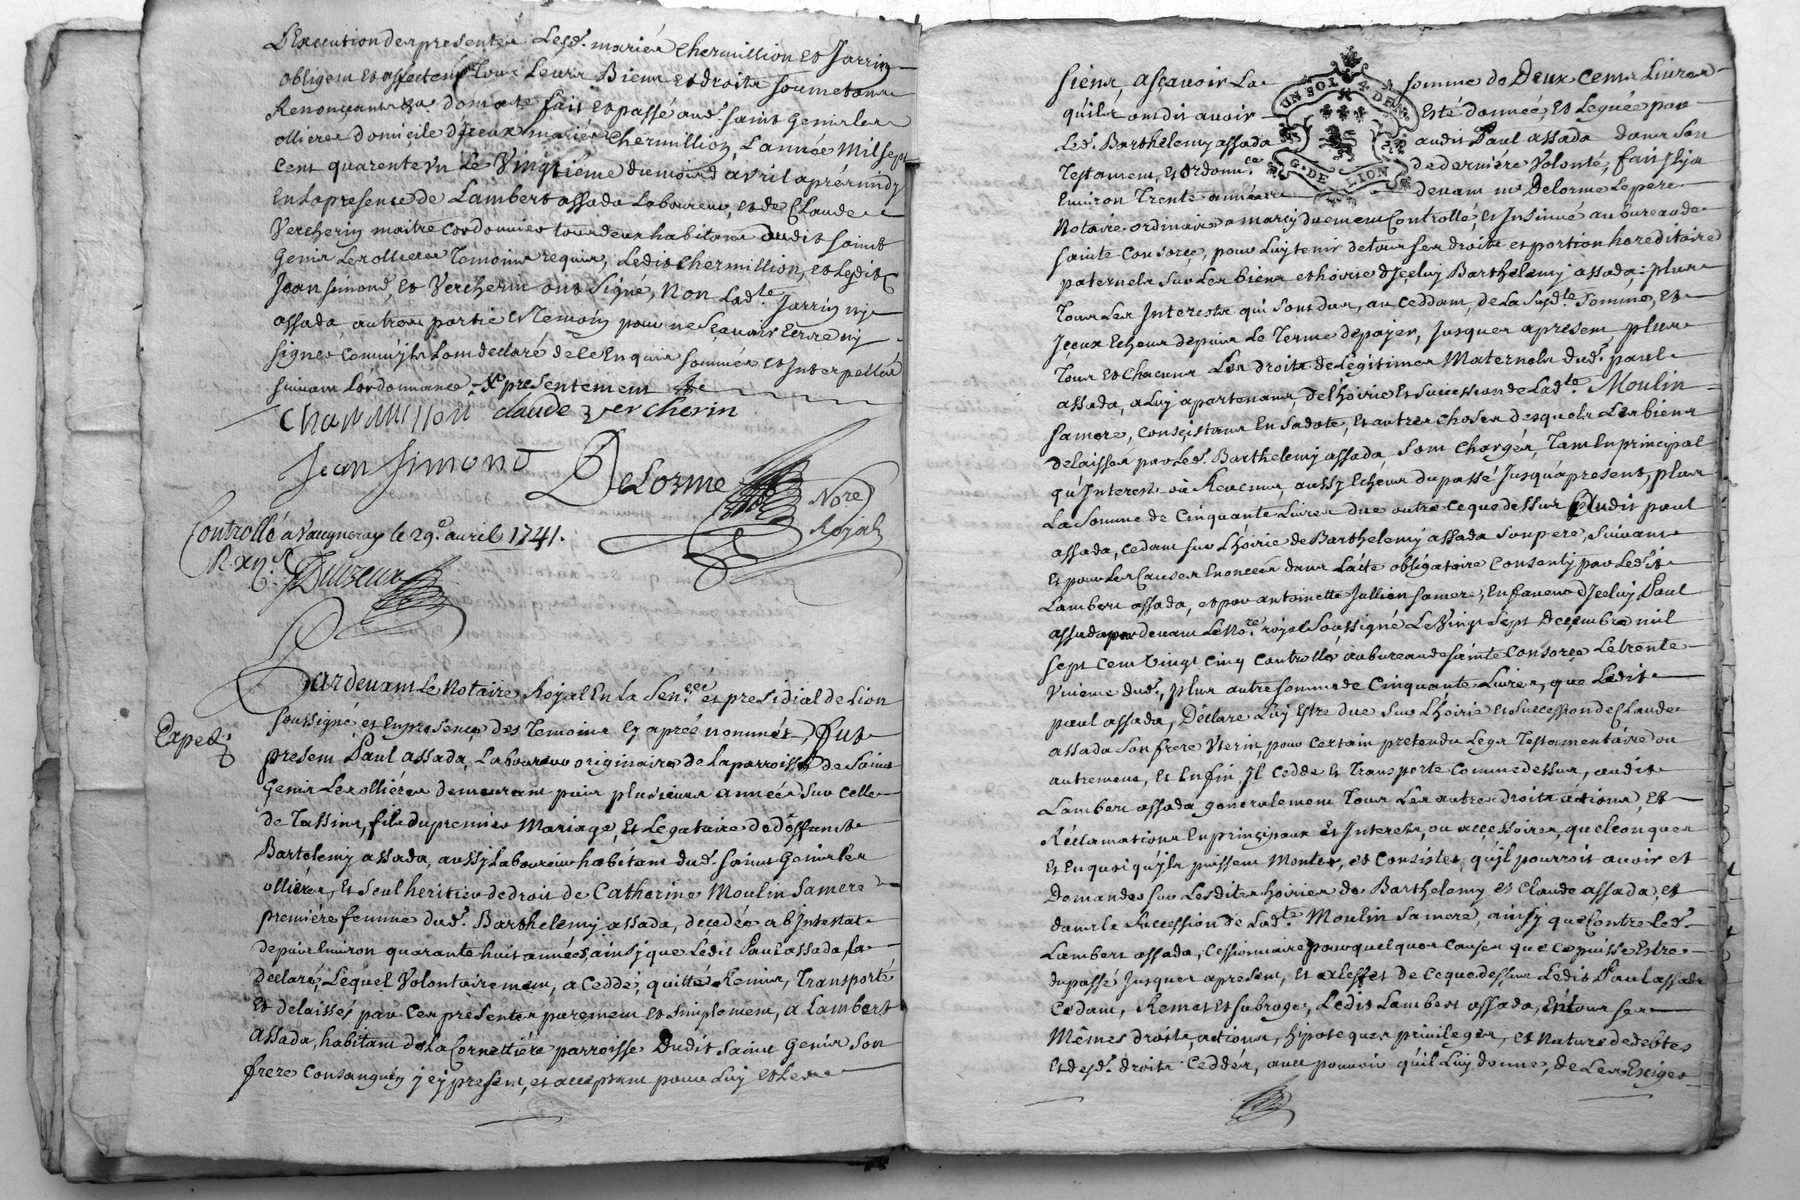 L'Execution des presentes Lesd. mariés Chermillion et Jarrin
obligent et affectent Tous Leurs Biens et droits soumetans
Renonçants &a dont acte fait et passé aud. saint Genis les
ollieres domicile d'Jceux mariés Chermillion, L'année Mil sept
cent quarente un Le Vingtiéme du mois d'avril aprés midy
En La presence de Lambert assada Laboureur, et de Claude
Vercherin maitre Cordonnier tous deux habitans dudit saint
Genis Les ollieres Temoins requis, Ledit Chermillion, et Ledit
Jean Simond, et Vercherin ont Signé, Non Lad.te Jarrin ny
assada, autres partie et Temoin pour ne sçavoir Ecrire ny
signer Comm'jls L'ont declaré de ce Enquis sommés et Interpellés
suivant L'ordonnance presentement
Charmillion claude vercherin
Jean Simond Delorme Nore
Royal
Controllé a Vaugneray le 29e avril 1741.
R. xii s.
Expedi
Pardevant Le Notaire Royal En La Sen.cée et presidial de Lion
soussigné, et En presence des Temoins Cy aprés nommés, Fut
present Paul assada, Laboureur originaire de La parroisse de Saint
Genis Les olliéres demeurant puis plusieurs années sur celle
de Tassins, fils du premier Mariage, et Legataire de deffunt
Bartelemy assada, aussy Laboureur habitant dud. saint Genis Les
olliéres, et seul heritier de droit de Catherine Moulin sa mere
premiére femme dud. Barthelemy assada, decedée ab Intestat
depuis Environ quarante huit années, ainsy que Ledit Paul assada L'a
declaré, Lequel Volontairement, a Ceddé, quitté, Remis, Transporté
et délaissés par Ces présentes purement et simplement, a Lambert
assada, habitant de La Cornettiére parroisse Dudit saint Genis son
frere Consanguin jcy present, et acceptant pour Luy et Les
UN SOL 4 DEN.
G. DE LION
siens, asçavoir La somme de Deux Cents Livres
qu'ils ont dit avoir Esté donnée, et Leguée par
Led. Barthelemy assada audit Paul assada dans son
Testament, et ordonn.ce de derniére Volonté, fait jl y a
Environ Trente années devant me Delorme Le pere
Notaire ordinaire a marcy duement Controllé, et Insinué au bureau de
sainte Consorce, pour Luy tenir de tous ses droits et portion hereditaire
paternels sur Les biens et hoirie d'Jceluy Barthelemy assada; plus
Tous Les Interests qui sont dus, au Ceddant, de La susd.te somme, et
Jceux Echeus depuis Le Terme de payer, Jusques a present plus
Tous et chacuns Les droits de Légitimes Maternels dud. paul
assada, a Luy apartenans, de L'hoirie et succession de Lad.te Moulin
sa mere, Consistans En sa dote, et autres choses desquels Les biens
delaissés par Led. Barthelemy assada sont Chargés, Tant En principal
qu'Interests ou Revenus, aussy Echeus du passé Jusqu'a present, plus
La Somme de Cinquante Livres due outre ce que dessus Audit paul
assada, cedant sur L'hoirie de Barthelemy assada son pere, suivant
Et pour Les Causes Enoncées dans L'acte obligatoire Consenty par Ledit
Lambert assada, et par antoinette Jullien sa mere, En faveur d'Jceluy Paul
assada par devant Le Nore royal soussigné Le Vingt sept Decembre mil
sept cent Vingt cinq Controllé au bureau de sainte Consorce Le trente
Unieme dud., plus autre somme de Cinquante Livres, que Ledit
paul assada, Déclare Luy Estre due sur L'hoirie et succession de Claude
assada son frere Uterin, pour certain pretendu Legs Testamentaire ou
autrement, et Enfin Jl Cedde et Transporte Comme dessus, audit
Lambert assada généralement Tous Les autres droits actions et
Réclamations En principaux et Interests, ou accessoires, quelconques
Et En quoi qu'jls puissent Monter, et Consister, qu'jl pourroit avoir et
Demander sur Lesdites hoiries de Barthelemy et Claude assada, et
dans La succession de Lad.te Moulin sa mere, ainsy que Contre Led.
Lambert assada, Cessionnaire pour quelques Causes que ce puisse Estre
du passé Jusques a present, et a L'effet de Ce que dessus Ledit Paul assada
Cedant, Remet et subroge, Ledit Lambert assada, En tous ses
Mêmes droits, actions, hipoteques privileges, et Nature de debtes
Et desd. droits Ceddés, avec pouvoir qu'il Luy donne, de Les Exiger